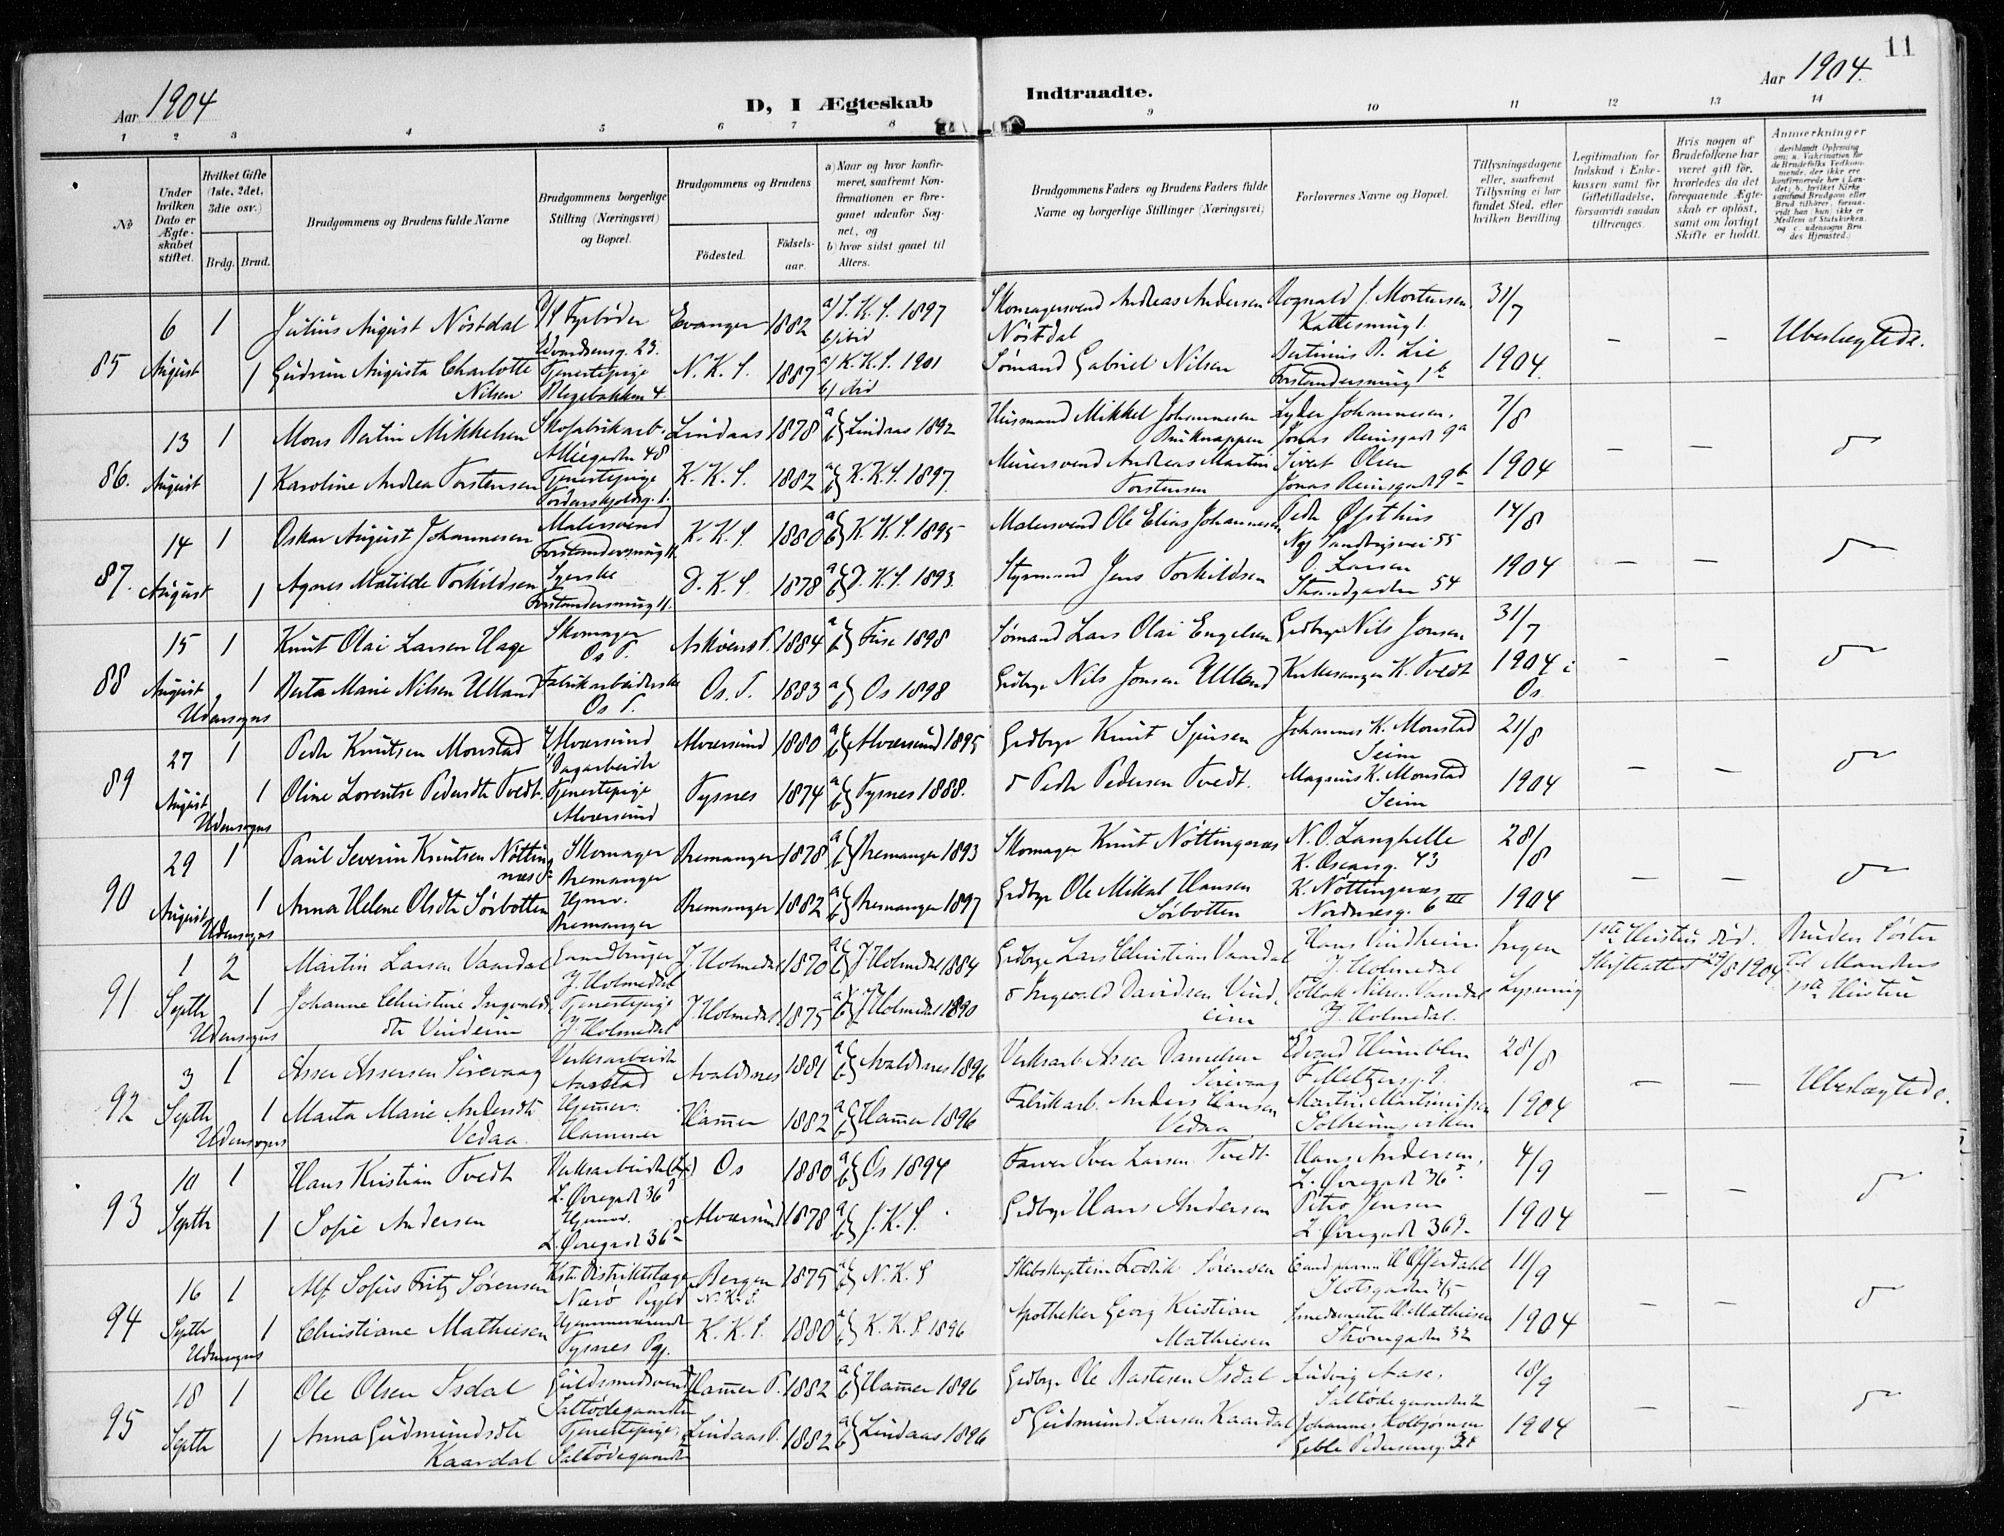 11
Aar 1904
D, I Ægteskab Indtraadte.
Aar 1904.
1 2 3 4 5 6 7 8 9 10 11 12 13 14
No
Under hvilken Dato er Ægteskabet stiftet.
Hvilket Gifte (1ste, 2det, 3die osv.)
Brdg. Brud.
Brudgommens og Brudens fulde Navne
Brudgommens borgerlige Stilling (Næringsvei) og Bopæl.
Brudgommens og Brudens
Födested.
Födselsaar.
a) Naar og hvor konfirmeret, saafremt Konfirmationen er foregaaet udenfor Sognet, og
b) hvor sidst gaaet til Alters.
Brudgommens Faders og Brudens Faders fulde Navne og borgerlige Stillinger (Næringsvei)
Forlovernes Navne og Bopæl.
Tillysningsdagene eller, saafremt Tillysning ei har fundet Sted, efter hvilken Bevilling
Legitimation for Indskud i Enkekassen samt for Giftetilladelse, forsaavidt saadan tiltrænges.
Hvis nogen af Brudefolkene har været gift før, hvorledes da det foregaaende Ægteskab er oplöst, samt om lovligt Skifte er holdt.
Anmerkninger
85 6 August 1 Julius August Nöstdal Fyrböder Evanger 1882 1897 Skomagersvend Andreas Andersen Nöstdal 31/7 – – Ubeslægtede.
1 Gudrun Augusta Charlotte Nilsen Tjenestepige Blegebakken 4 N. K. S. 1887 a) K. K. S. 1901 b) ibid Sømand Gabriel Nilsen Bertinius B. Lie Forstandersmug 1b 1904.
86. 13 August 1 Mons Bertin Mikkelsen Skofabrikarb. Alléegaden 48 Lindaas 1878 Lindaas 1892 Husmand Mikkel Johannesen Lyder Johannesen, Jonas Reinsgade 9a 7/8 – –
1 Karoline Andrea Torstensen Tjenestepige Tordenskjoldsg. 1. K. K. S. 1882 K. K. S. 1897. Murersvend Andreas Martin Torstensen Sivert Olsen Jonas Reinsgade 9b 1904
87. 14 August 1 Oskar August Johannesen Malersvend Forstandersmug 11. K. K. S. 1880 K. K. S. 1895 Malersvend Ole Elias Johannesen Peder Østhus 55 14/8 – –
1 Agnes Matilde Torkildsen Syerske Forstandersmug 11. D. K. S. 1878 D. K. S. 1893. Styrmand Jens Torkildsen O. Larsen Strandgaden 54 1904
88 15 August Udensogns 1 Knut Olai Larsen Hage Skomager Os P. 1884 Fuse 1898 Sømand Lars Olai Engelsen Grdbrgr Nils Jonsen 31/7 – –
1 Berta Marie Nilsen Ulland Fabrikarbeiderske Os P. Os. P. 1883 Os 1898 Grdbrgr Nils Jonsen Ulland Kirkesanger K. Tvedt 1904 i Os.
89 27 August Udensogns 1 Peder Knutsen Monstad Alversund Dagarbeider Alversund 1880 Alversund 1895 Grdbrgr Knut Sjursen Johannes K. Monstad Seim 21/8 – –
1 Oline Lorentse Pedersdtr Tvedt. Tjenestepige Alversund Tysnes 1874 Tysnes 1888. Peder Pedersen Tvedt. Magnus K. Monstad Seim 1904
90 29 August Udensogns 1 Paul Severin Knutsen Nöttingnæs Skomager Bremanger Bremanger 1878 Bremanger 1893 Skomager Knut Nöttingnæs N. O. Langhelle K. Oscarsg. 43 28/8 – –
1 Anna Helene Olsdtr Sörbotten Hjmv. Bremanger Bremanger 1882 Bremanger 1897 Grdbrgr Ole Mikal Hansen Sörbotten K. Nöttingnæs Nordnæsg. 6 III 1904
91 1 Septbr Udensogns 2 Martin Larsen Vaardal Gaardbruger J. Holmedal J. Holmedal 1870 J. Holmedal 1884 Grdbrgr Lars Christian Vaardal Hans Vindheim. J. Holmedal Ingen Lysning 1ste Hustru död. Skifteattest 29/8 1904. Bruden Söster til Mandens 1ste Hustru
1 Johanne Christine Ingvaldsdtr Vindeim Tjenestepige J. Holmedal J. Holmedal 1875 J. Holmedal 1890 Ingevald Davidsen Vindeim Nilsen Vaardal J. Holmedal.
92 3 Septbr Udensogns 1 Asser Assersen Sirevaag Verksarbeider Aarstad Avaldsnes 1881 Avaldsnes 1896 Verksarb. Asser Danielsen Sirevaag Edvard F. Meltzersg. 28/8 – – Ubeslægtede.
1 Marta Marie Andersdtr Vedaa Hjemmev. Hammer Hammer 1882 Hammer 1896 Fabrikarb. Anders Hansen Vedaa Martin Martinussen Solheimsviken 1904
93 10 Septbr 1 Hans Kristian Tvedt Verksarbeider L. Øvregade 36 Os 1880 Os 1894 Farver Iver Larsen Tvedt. Hans Andersen, L. Øvregade 36 4/9 – –
1 Sofie Andersen Hjemv. L. Øvregade 36 Alversund 1878 J. K. S. Grdbrgr Hans Andersen Petra Jensen L. Øvregade 36 1904
94 16 Septbr Udensogns 1 Alf Sofus Fritz Sörensen Kst. Distriktslæge Nærö Bergen N. K. S. 1875 N. K. S Skibskaptein Fredrik Sörensen Offerdahl Slotsgaden 3/5 11/9 – –
1 Christiane Mathiesen Hjemmeværende Tysnes Pgj. K. K. S. 1880 K. K. S. 1896 Apotheker Georg Kristian Mathiesen Mathiesen Strømgaden 32 1904
95 18 Septbr 1 Ole Olsen Isdal Guldsmedsvend Hammer P. 1882 Hammer 1896 Grdbrgr Ole Bastesen Isdal Ludvig Aase, 18/9 – –
1 Anna Gudmundsdtr Kaardal Tjenestepige, Lindaas P. 1882 Lindaas 1896 Gudmund Larsen Kaardal Johannes Kolbjörnsen Geble Pedersensg. 1904